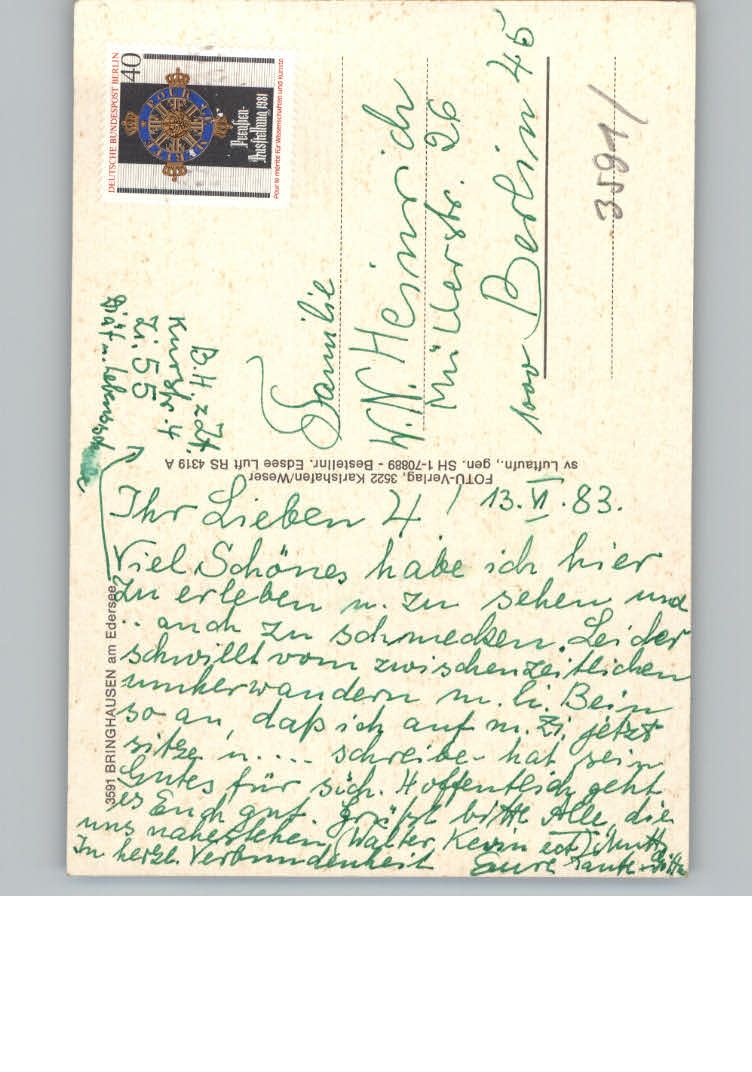 DEUTSCHE BUNDESPOST BERLIN
40
POUR LE MERITE
Preußen-
Ausstellung 1981
Pour le mérite für Wissenschaften und Künste
B.H. z. Zt.
Kurstr. 4
Zi. 55
Diät u.
Familie
W. N. Heinrich
Müllerstr. 26
1000 Berlin 45
3591/
sv Luftaufn., gen. SH 1-70889 - Bestellnr. Edsee Luft RS 4319 A
FOTU-Verlag, 3522 Karlshafen/Weser
3591 BRINGHAUSEN am Edersee
Ihr Lieben 4! 13. VI. 83.
Viel Schönes habe ich hier
zu erleben u. zu sehen und
.. auch zu schmecken. Leider
schwillt vom zwischenzeitlichen
umherwandern m. li. Bein
so an, daß ich auf m. Zi. jetzt
sitze u. ... schreibe - hat sein
Gutes für sich. Hoffentlich geht
es Euch gut. Grüßt bitte Alle, die
uns nahestehen, Walter, Kevin
In herzl. Verbundenheit Eure Tante